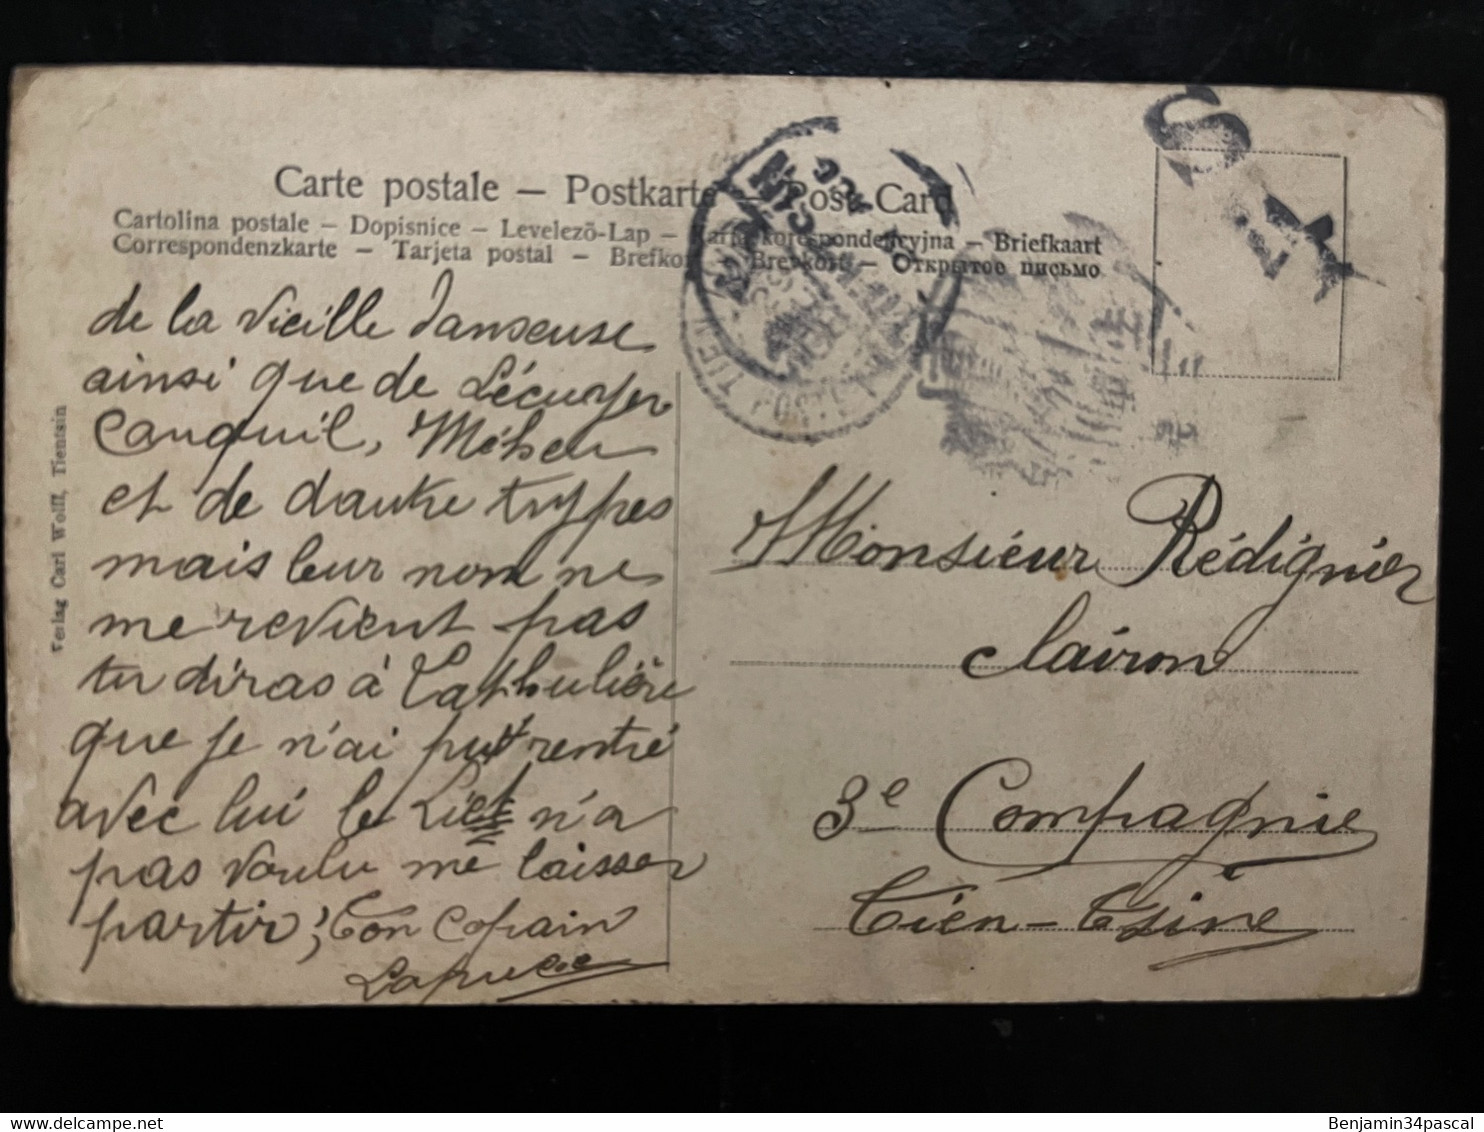 Carte postale – Postkarte – Post-Card
Cartolina postale – Dopisnice – Levelezõ-Lap – Karta korespondencyjna – Briefkaart
Correspondenzkarte – Tarjeta postal – Brefkort – Brevkort – Открытое письмо
Verlag Carl Wolff, Tientsin
de la vieille danseuse
ainsi que de Lécuyer
Canquil, Méheu
et de dautre types
mais leur nom ne
me revient pas
tu diras à
que je n'ai put rentré
avec lui le Liet n'a
pas voulu me laisser
partir; Ton Copain
Monsieur Rédignier
Clairon
3e Compagnie
Tién-Tsine
Benjamin34pascal
delcampe.net